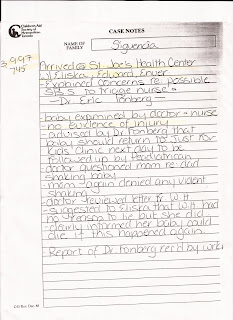 Children's Aid
Society of
Metropolitan
Toronto
CASE NOTES
NAME OF
FAMILY
Siguencia
997
745
Arrived @ St. Joe's Health Center
Eliska, Edward, Enver
Explained concerns re: possible
SBS to triage nurse
- Dr. Eric Fonberg -
baby examined by doctor + nurse
no evidence of injury
- advised by Dr. Fonberg that
baby should return to Just for
Kids clinic next day to be
followed up by Pediatrician
- doctor questioned mom re: ∅
shaking baby
- mom again denied any violent
shaking
- doctor reviewed letter fr WH
- suggested to Eliska that WH had
no reason to lie but she did
- clearly informed her baby could
die if this happened again.
Report of Dr. Fonberg rec'd by wrkr